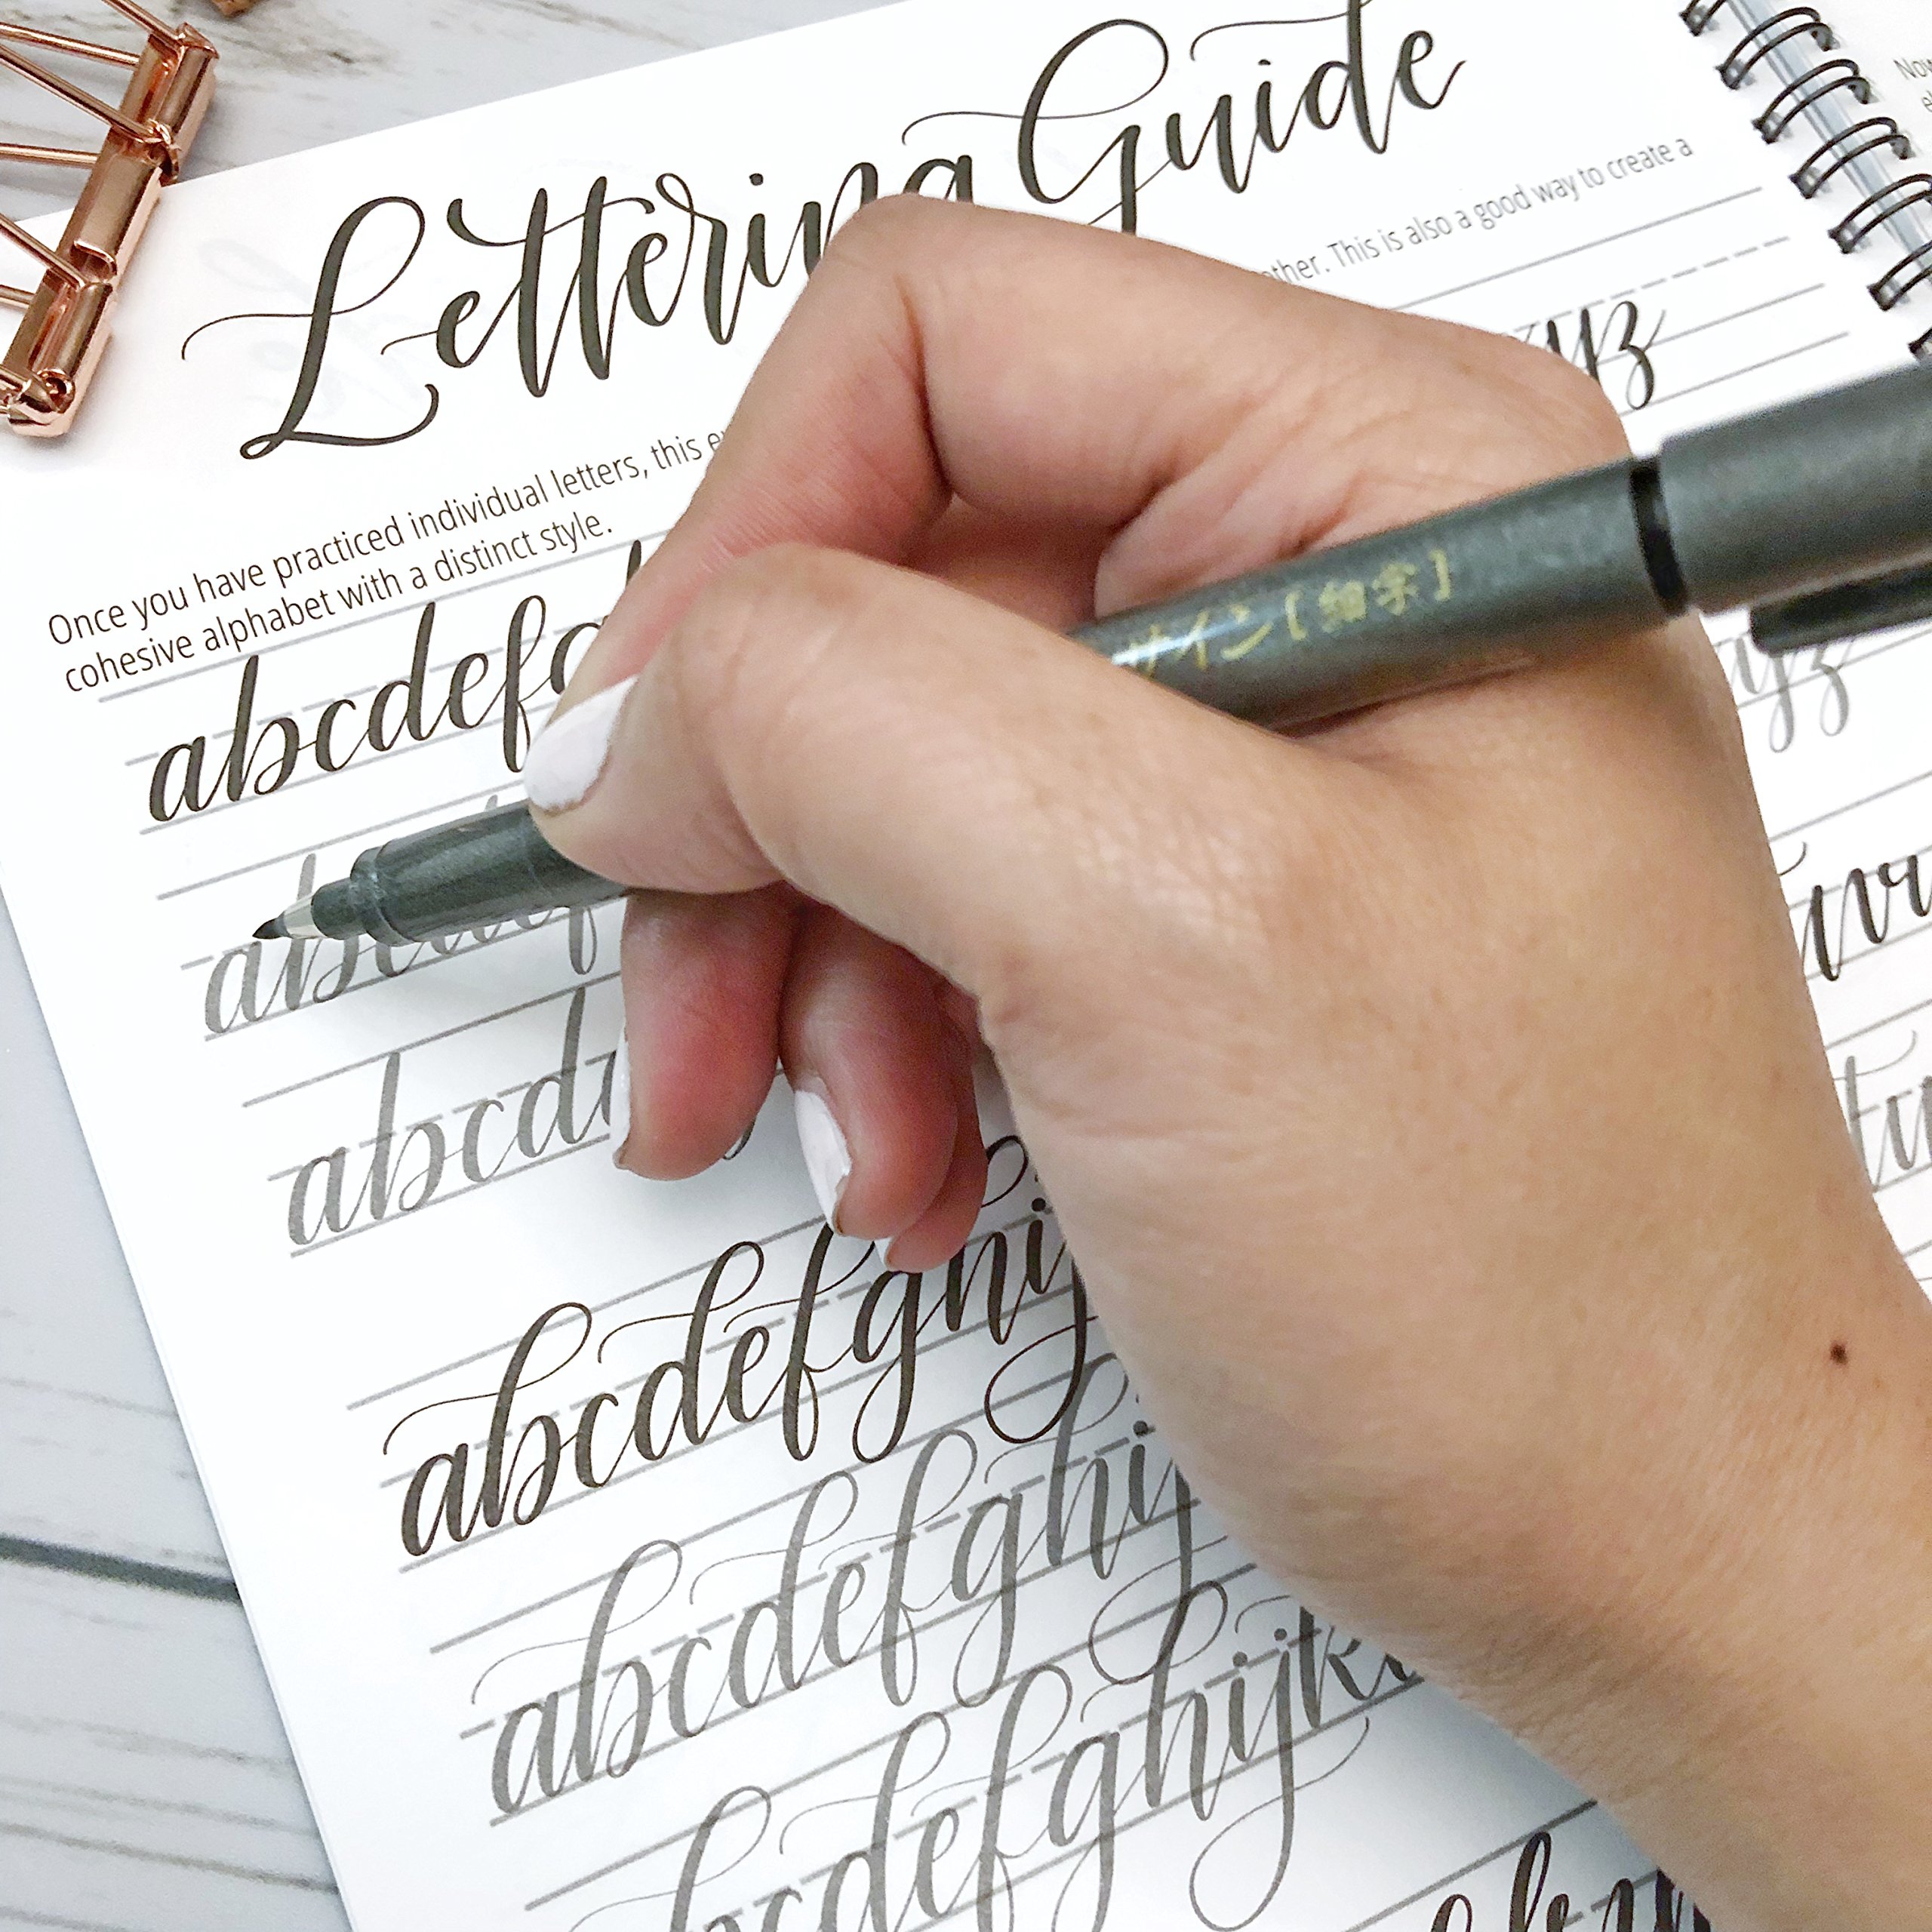 Lettering Guide
Once you have practiced individual letters, this other. This is also a good way to create a
cohesive alphabet with a distinct style.
abcdef yz
サイン[細字]
abcdef yz
abcd
abcdefghij
abcdefghij
abcdefghijk
Now